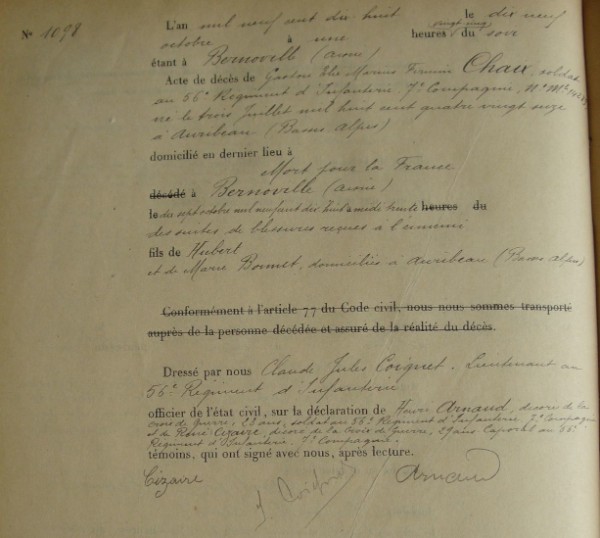 N° 1098
L'an mil neuf cent dix huit le dix neuf
octobre à une heures vingt cinq du soir
étant à Bernoville (aisne)
Acte de décès de Gaston Elie Marius Firmin Chaix, soldat
au 56e Regiment d'Infanterie. 7e Compagnie, N° Mle
né le trois Juillet mil huit cent quatre vingt seize
à Auribeau (Basses Alpes)
domicilié en dernier lieu à
Mort pour la France
décédé à Bernoville (aisne)
le dix sept octobre mil neuf cent dix huit à midi trente heures du
des suites de blessures reçues à l'ennemi
fils de Hubert
et de Marie Bonnet, domiciliés à Auribeau (Basses Alpes)
Conformément à l'article 77 du Code civil, nous nous sommes transporté
auprès de la personne décédée et assuré de la réalité du décès.
Dressé par nous Claude Jules Coignet, Lieutenant au
56e Regiment d'Infanterie
officier de l'état civil, sur la déclaration de Henri Arnaud, décoré de la
croix de guerre, 23 ans, soldat au 56e Regiment d'Infanterie, 7e Compagnie
et de René Cizaire, décoré de la Croix de Guerre, ans Caporal au 56e
Regiment d'Infanterie. 7e Compagnie.
témoins, qui ont signé avec nous, après lecture.
Cizaire J. Coignet Arnaud